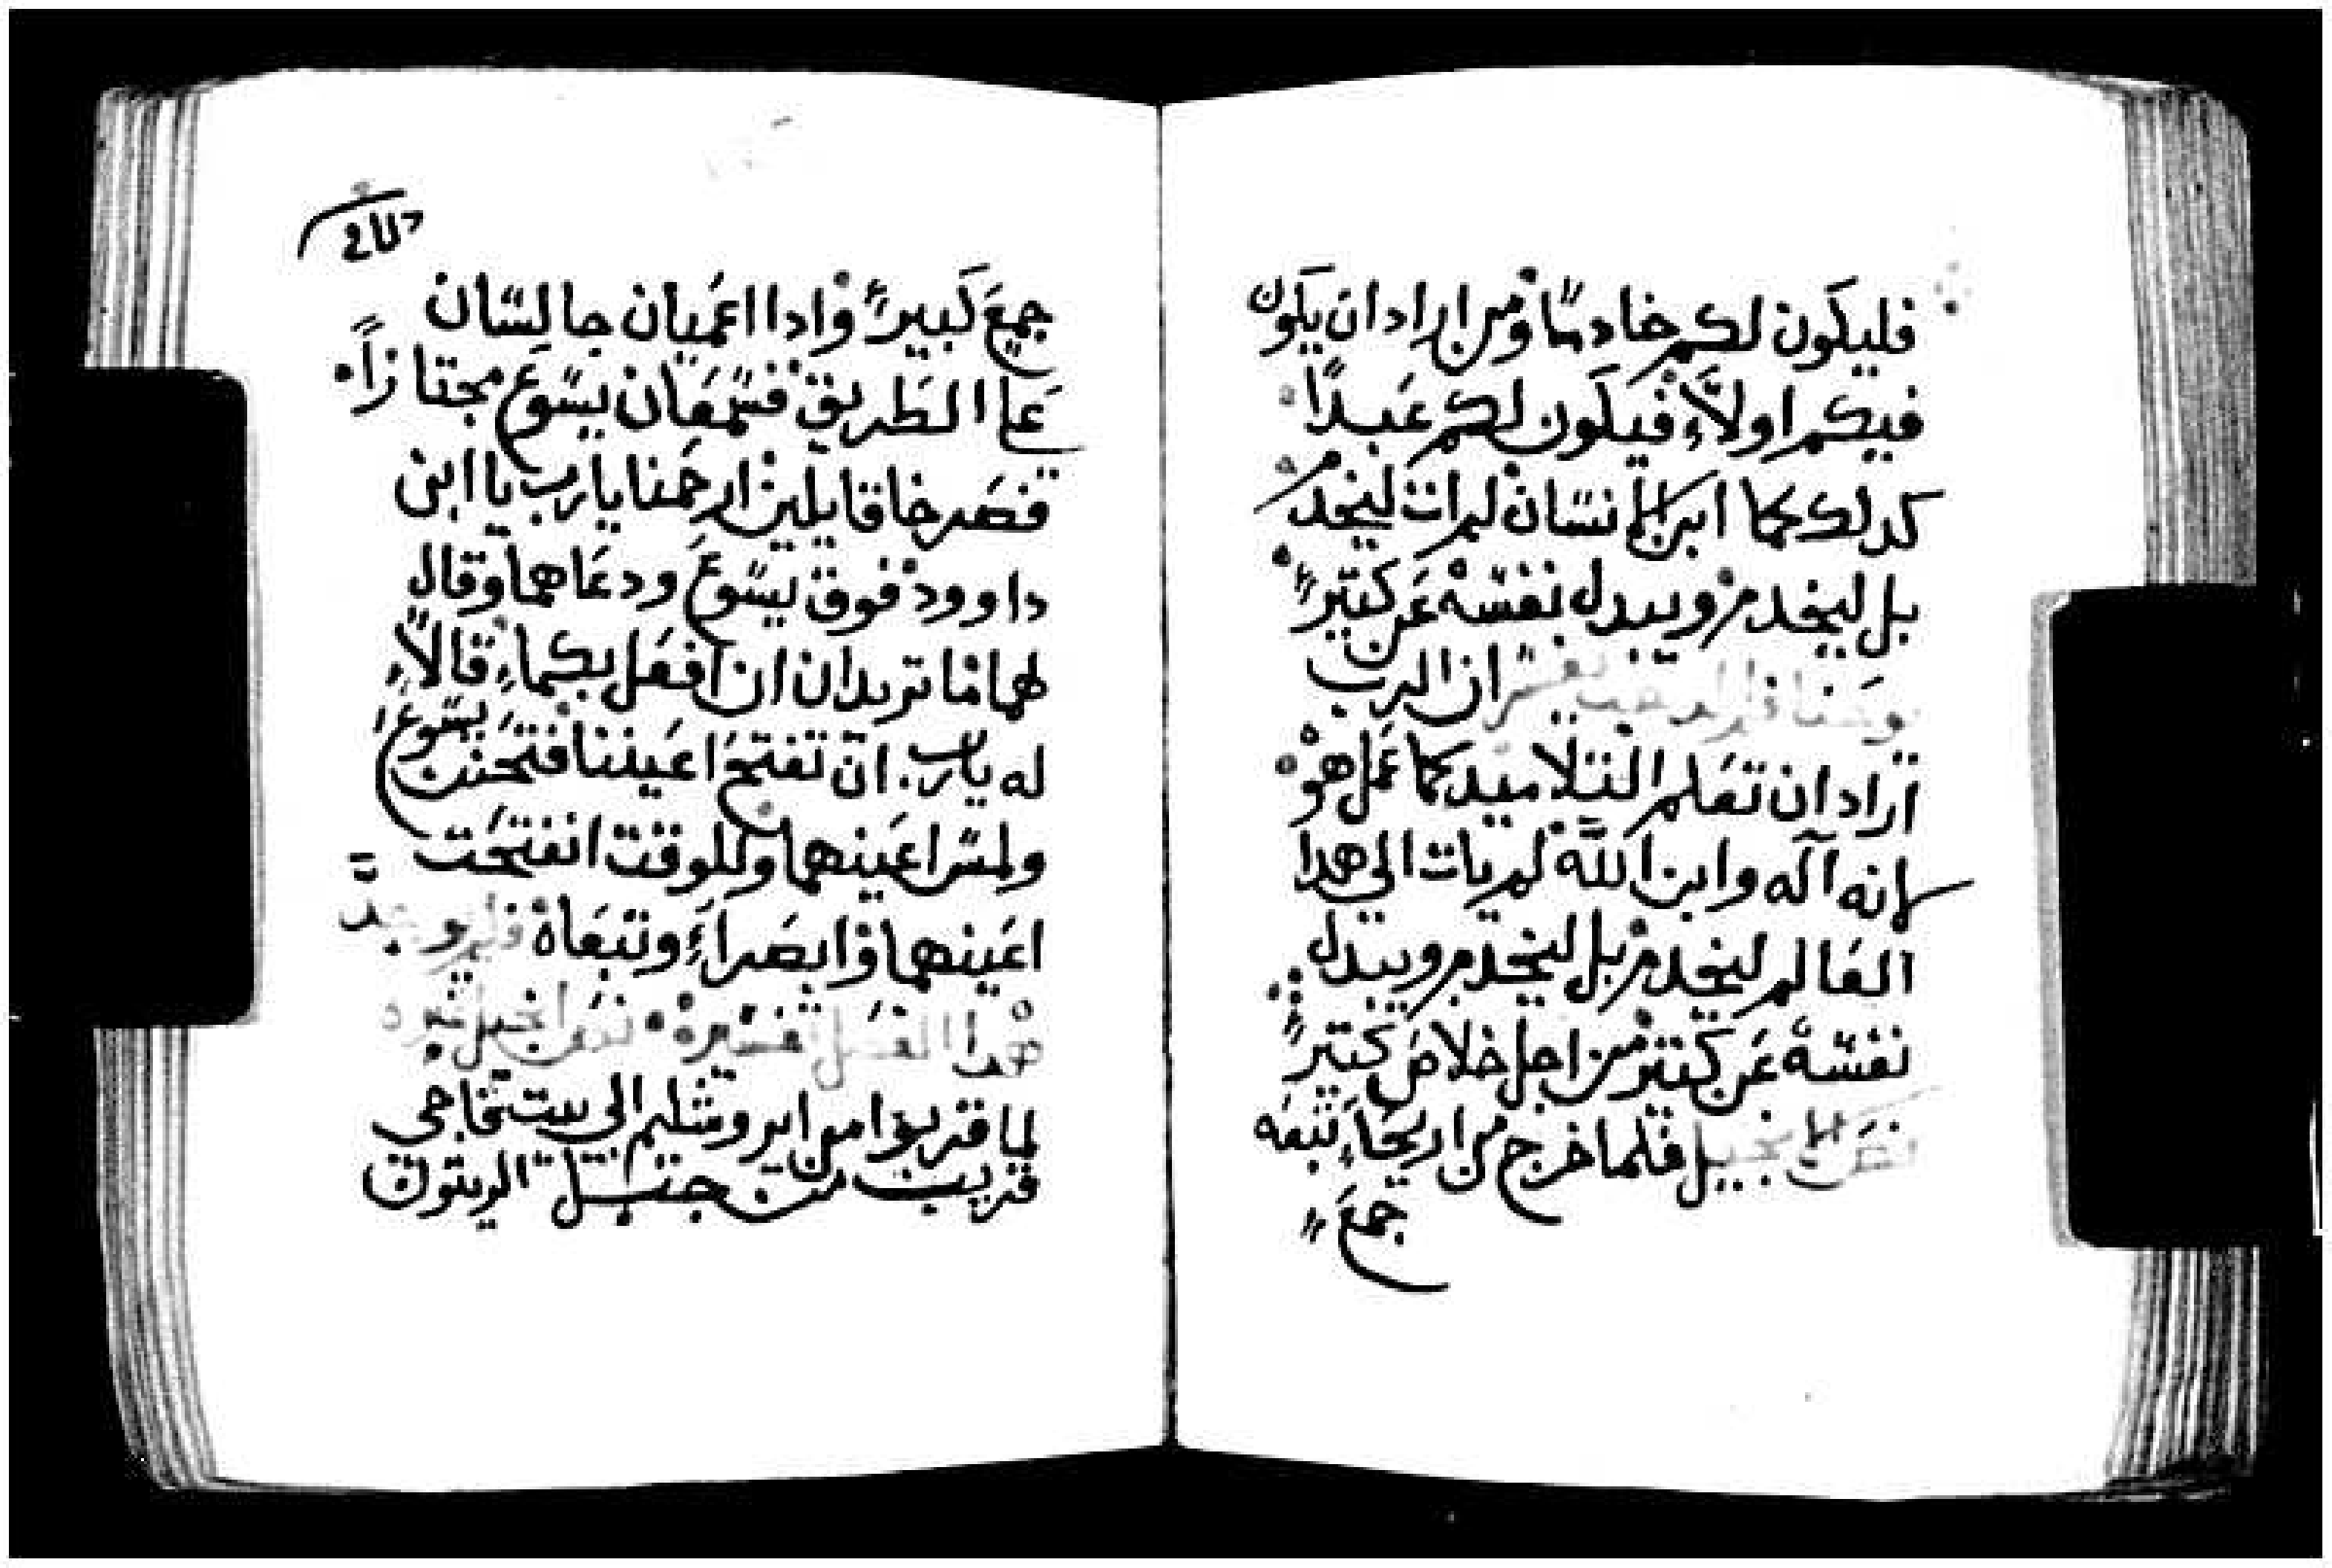 فليكون لكم خادمًا ومن اراد ان يكون
فيكم اولاً، فيكون لكم عبدًا
كدلك كما ابن الانسان لم ات ليخدم
بل ليخدم ويبدل نفسه عن كتير
يوحنا فم الدهب يفسر ان الرب
اراد ان تعلم التلاميد كما عمل هو
لانه اله وابن الله لم يات الى هدا
العالم ليخدم بل ليخدم ويبدل
نفسه عن كتير من اجل خلاص كتير
نص الانجيل فلما خرج من اريحا، تبعه
جمع
جمع كبير، وادا اعميان جالسان
على الطريق فسمعان يسوع مجتازاً
فصرخا قايلين ارحمنا يارب يا ابن
داوود فوق يسوع ودعاهما وقال
لهما ما تريدان ان افعل بكما، قالا،
له يارب. ان تفتح اعيننا فتحنن يسوع
ولمس اعينهما وللوقت انفتحت
اعينهما وابصرا، وتبعاه
هدا الفصل تفسيره
لما قربوا من ايروشليم الى بيت فاجي
قريب من جبل الزيتون